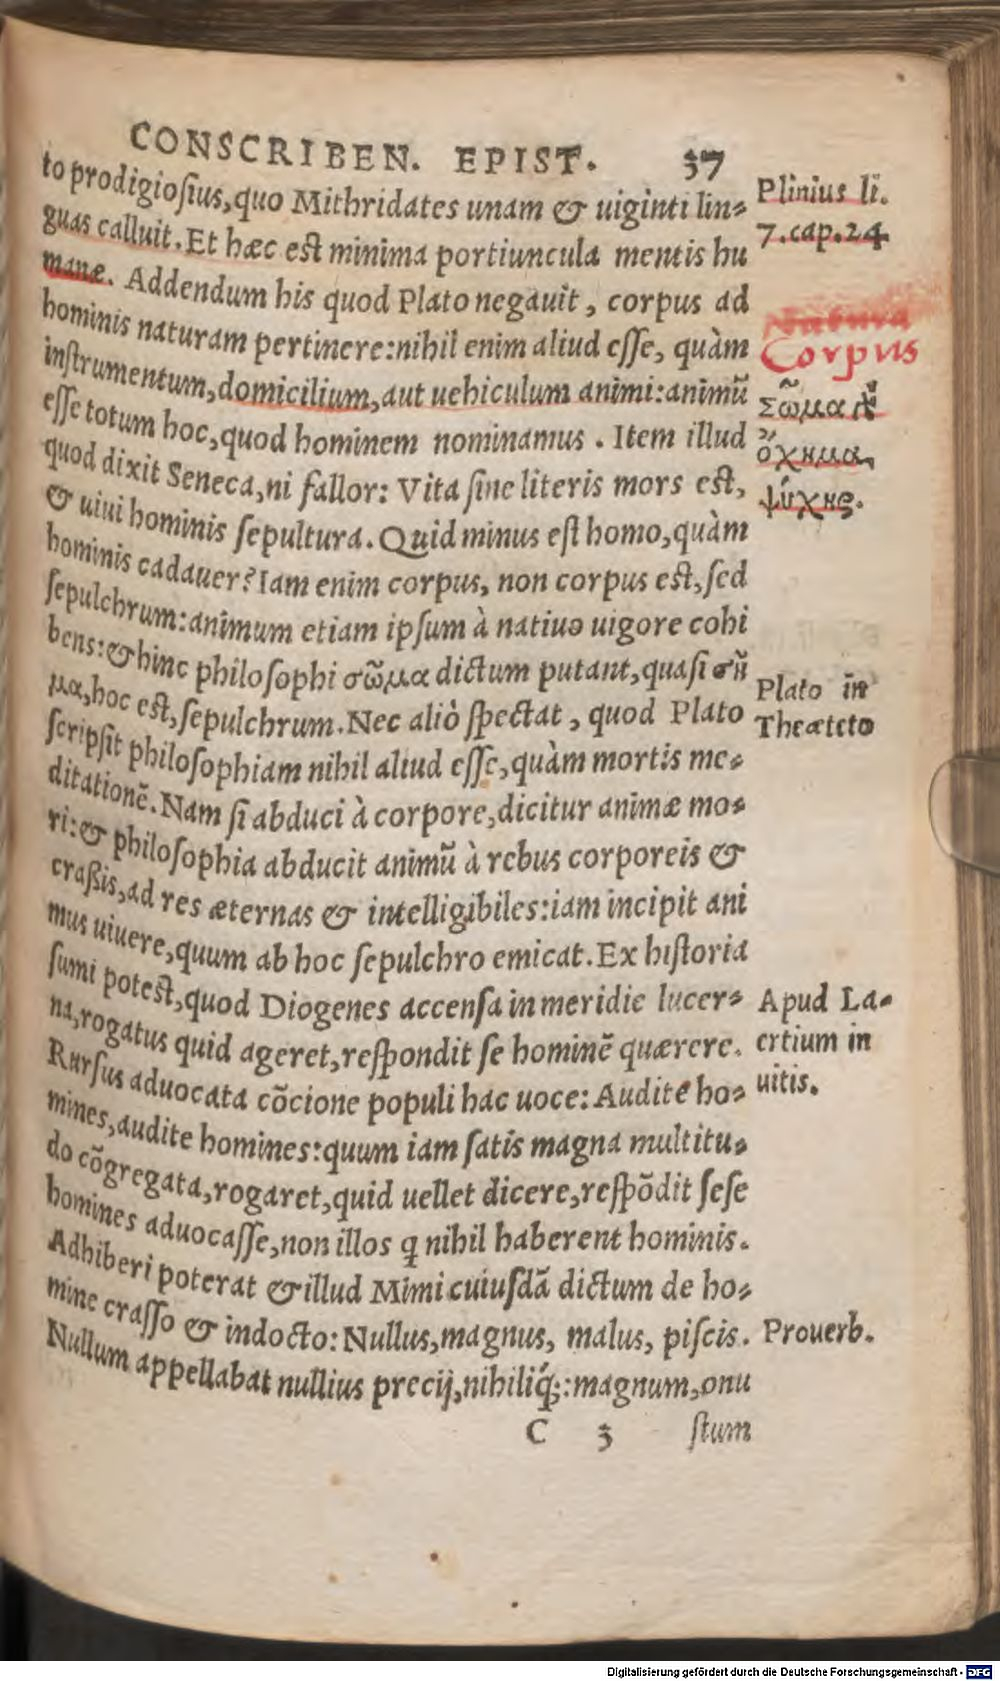 CONSCRIBEN. EPIST. 37
to prodigiosius,quo Mithridates unam & uiginti lin-
guas calluit.Et hæc est minima portiuncula mentis hu
manæ. Addendum his quod Plato negauit, corpus ad
hominis naturam pertinere:nihil enim aliud esse, quàm
instrumentum,domicilium,aut uehiculum animi:animū
esse totum hoc,quod hominem nominamus. Item illud
quod dixit Seneca,ni fallor: Vita sine literis mors est,
& uiui hominis sepultura.Quid minus est homo,quàm
hominis cadauer?Iam enim corpus, non corpus est,sed
sepulchrum:animum etiam ipsum à natiuo uigore cohi
bens:& hinc philosophi σῶμα dictum putant,quasi σῆ
μα,hoc est,sepulchrum.Nec aliò spectat, quod Plato
scripsit philosophiam nihil aliud esse,quàm mortis me-
ditationē.Nam si abduci à corpore,dicitur animæ mo-
ri:& philosophia abducit animū à rebus corporeis &
craßis,ad res æternas & intelligibiles:iam incipit ani
mus uiuere,quum ab hoc sepulchro emicat.Ex historia
sumi potest,quod Diogenes accensa in meridie lucer-
na,rogatus quid ageret,respondit se hominē quærere.
Rursus aduocata cōcione populi hac uoce: Audite ho-
mines,audite homines:quum iam satis magna multitu-
do cōgregata,rogaret,quid uellet dicere,respōdit sese
homines aduocasse,non illos q nihil haberent hominis.
Adhiberi poterat & illud Mimi cuiusdā dictum de ho-
mine crasso & indocto: Nullus,magnus, malus, piscis.
Nullum appellabat nullius precij,nihiliq́;:magnum,onu
C 3 stum
Plinius li.
7.cap.24
Natura
Corpus
Σῶμα
ὄχημα,
ψύχης.
Plato in
Theæteto
Apud La-
ertium in
uitis.
Prouerb.
Digitalisierung gefördert durch die Deutsche Forschungsgemeinschaft - DFG